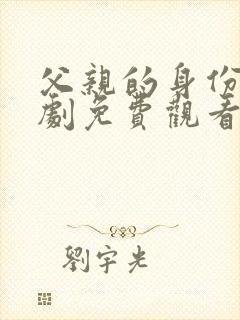 父親的身份
劇免費觀看
劉宇光